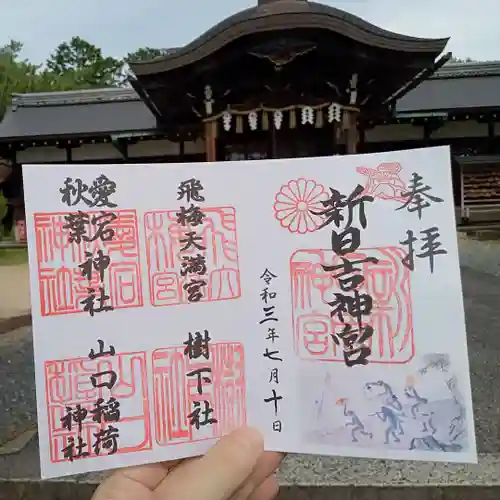 奉拝
新日吉神宮
令和三年七月十日
飛梅天満宮
樹下社
愛宕神社
秋葉
山口稲荷
神社